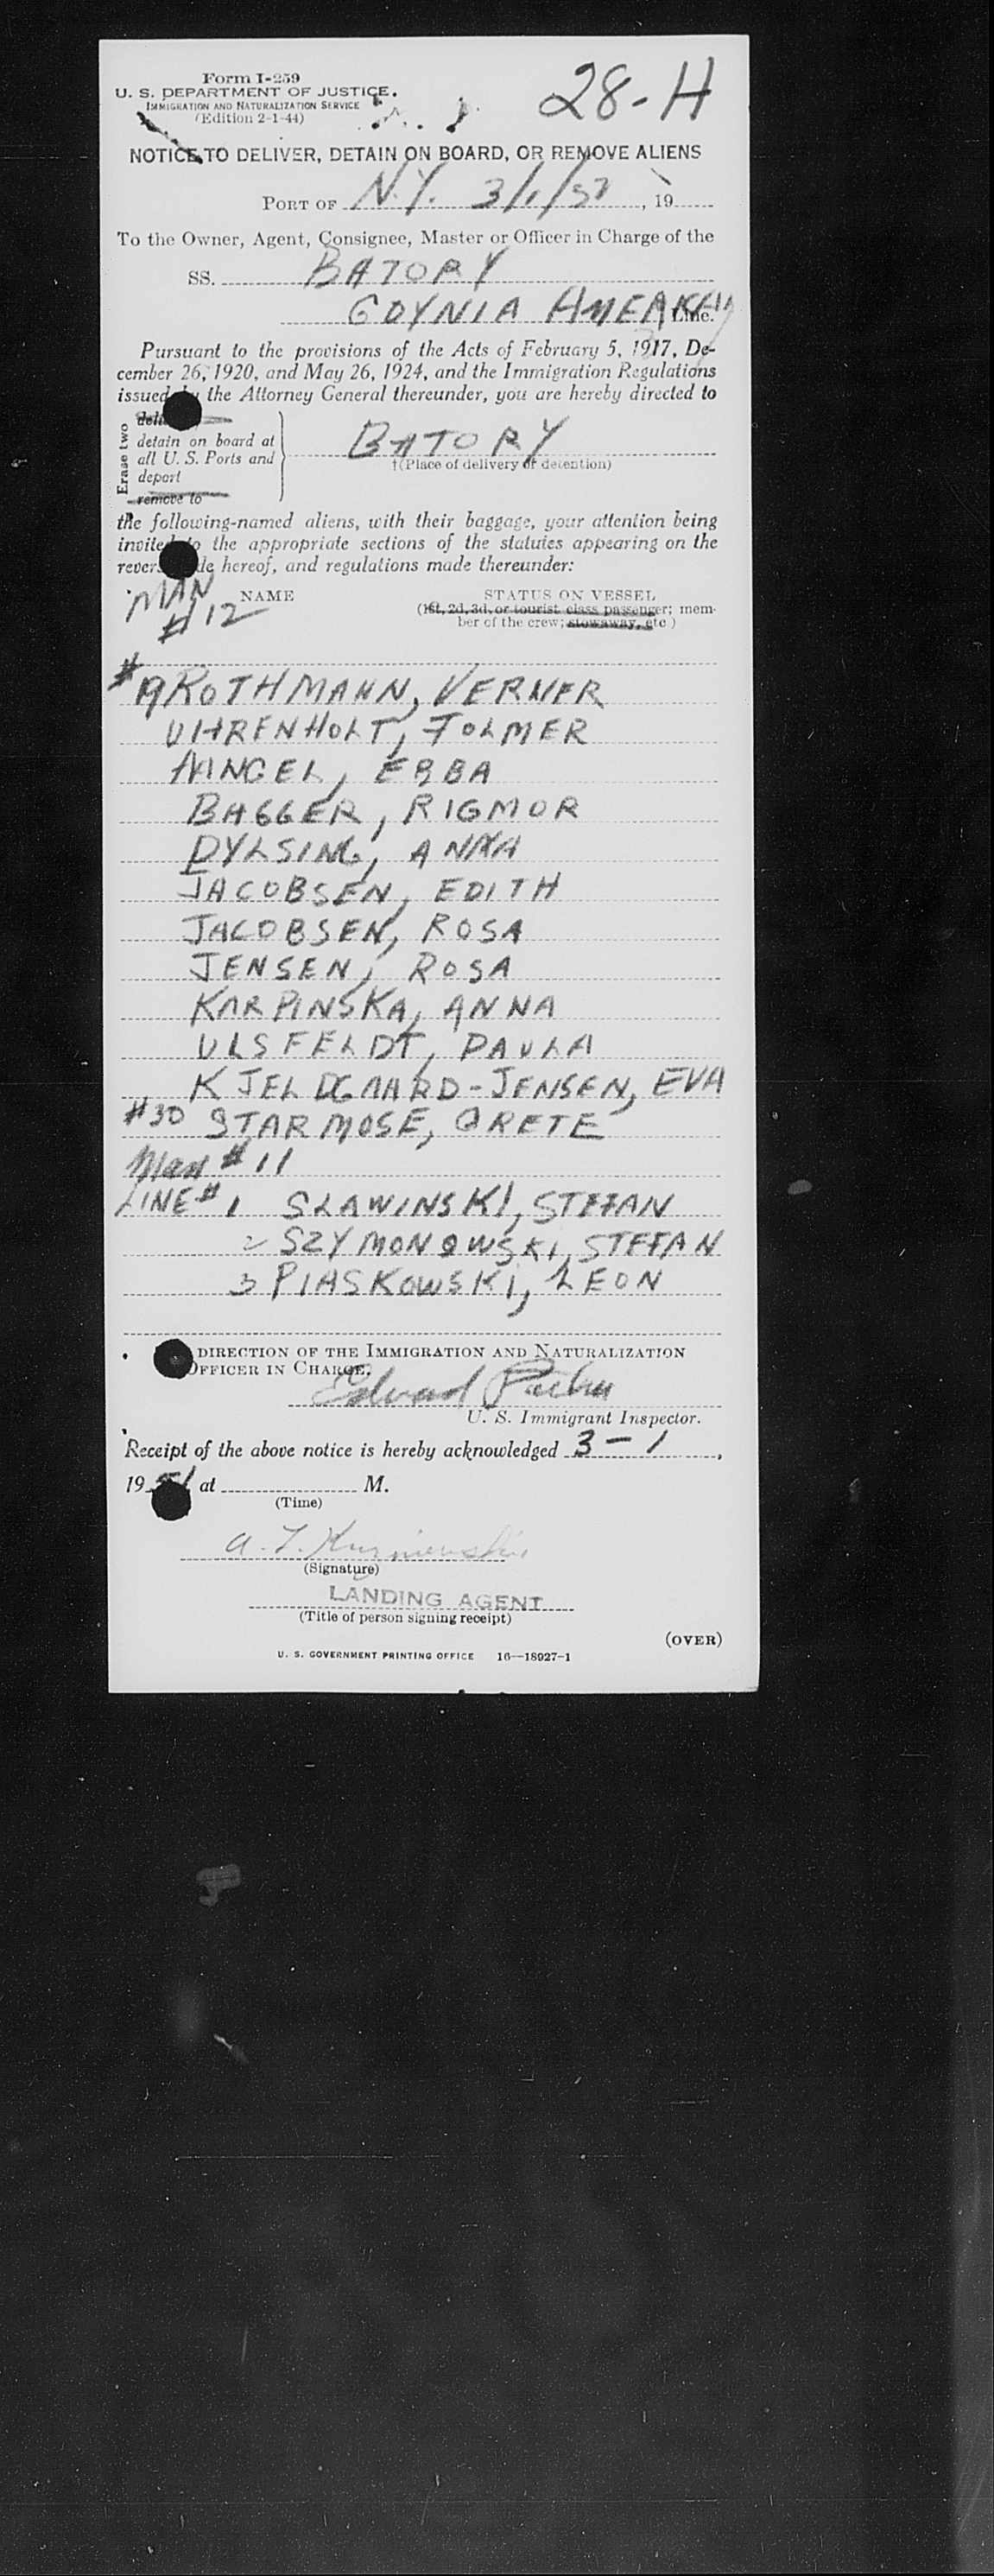 Form I-259
U. S. DEPARTMENT OF JUSTICE.
IMMIGRATION AND NATURALIZATION SERVICE
(Edition 2-1-44)
28-H
NOTICE TO DELIVER, DETAIN ON BOARD, OR REMOVE ALIENS
PORT OF N.Y. 3/1/51, 19
To the Owner, Agent, Consignee, Master or Officer in Charge of the
SS. BATORY
GDYNIA AMERICAN Line.
Pursuant to the provisions of the Acts of February 5, 1917, De-
cember 26, 1920, and May 26, 1924, and the Immigration Regulations
issued by the Attorney General thereunder, you are hereby directed to
Erase two
detain on board at
all U. S. Ports and
deport
remove to
BATORY
†(Place of delivery or detention)
the following-named aliens, with their baggage, your attention being
invited to the appropriate sections of the statutes appearing on the
reverse side hereof, and regulations made thereunder:
MAN
#12
NAME
STATUS ON VESSEL
(1st, 2d, 3d, or tourist class passenger; mem-
ber of the crew; stowaway, etc.)
#19 ROTHMANN, VERNER
UHRENHOLT, FOLMER
ANGEL, EBBA
BAGGER, RIGMOR
DYLSING, ANNA
JACOBSEN, EDITH
JACOBSEN, ROSA
JENSEN, ROSA
KARPINSKA, ANNA
ULSFELDT, PAULA
KJELDGAARD-JENSEN, EVA
#30 STARMOSE, GRETE
Man #11
LINE # 1 SLAWINSKI, STEFAN
2 SZYMONOWSKI, STEFAN
3 PIASKOWSKI, LEON
DIRECTION OF THE IMMIGRATION AND NATURALIZATION
OFFICER IN CHARGE.
Edward
U. S. Immigrant Inspector.
Receipt of the above notice is hereby acknowledged 3-1,
1951 at M.
(Time)
A. T.
(Signature)
LANDING AGENT
(Title of person signing receipt)
(OVER)
U. S. GOVERNMENT PRINTING OFFICE 16—18927-1